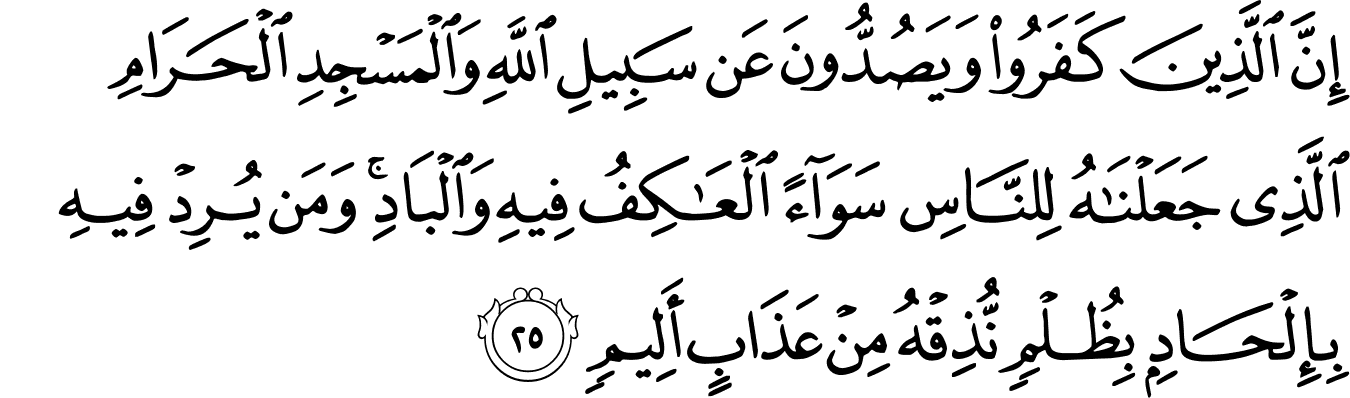 إِنَّ ٱلَّذِينَ كَفَرُوا۟ وَيَصُدُّونَ عَن سَبِيلِ ٱللَّهِ وَٱلْمَسْجِدِ ٱلْحَرَامِ
ٱلَّذِى جَعَلْنَـٰهُ لِلنَّاسِ سَوَآءً ٱلْعَـٰكِفُ فِيهِ وَٱلْبَادِ ۚ وَمَن يُرِدْ فِيهِ
بِإِلْحَادٍۭ بِظُلْمٍ نُّذِقْهُ مِنْ عَذَابٍ أَلِيمٍ ٢٥